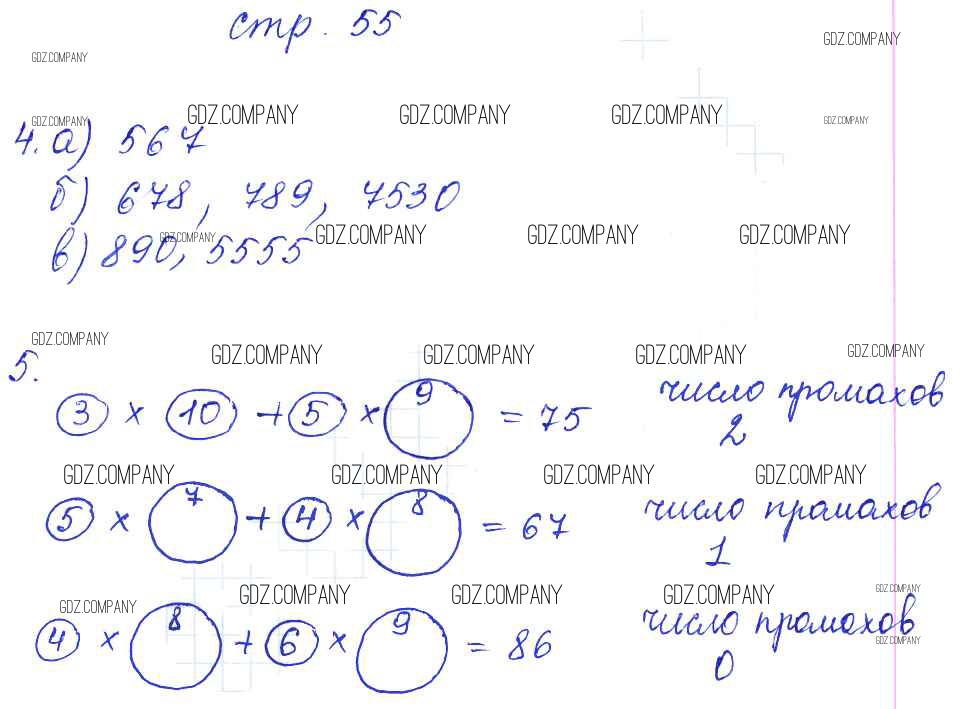 стр. 55
GDZ.COMPANY
GDZ.COMPANY
GDZ.COMPANY GDZ.COMPANY GDZ.COMPANY GDZ.COMPANY GDZ.COMPANY
4. а) 567
б) 678, 789, 7530
GDZ.COMPANY GDZ.COMPANY GDZ.COMPANY GDZ.COMPANY
в) 890, 5555
GDZ.COMPANY GDZ.COMPANY GDZ.COMPANY GDZ.COMPANY GDZ.COMPANY
5.
3 × 10 + 5 × 9 = 75 число промахов
2
GDZ.COMPANY GDZ.COMPANY GDZ.COMPANY GDZ.COMPANY
5 × 7 + 4 × 8 = 67 число прамахов
1
GDZ.COMPANY GDZ.COMPANY GDZ.COMPANY GDZ.COMPANY GDZ.COMPANY
4 × 8 + 6 × 9 = 86 число промахов
GDZ.COMPANY
0